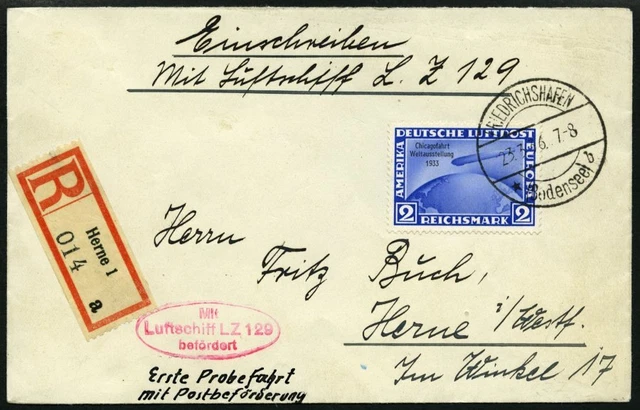 Einschreiben
Mit Luftschiff L. Z 129
FRIEDRICHSHAFEN
23.3.36. 7-8
* (Bodensee) b
DEUTSCHE LUFTPOST
AMERIKA
EUROPA
Chicagofahrt
Weltausstellung
1933
2 REICHSMARK 2
R
Herne 1
014
a
Herrn
Fritz Buch,
Herne i/Westf.
Im Winkel 17
Mit
Luftschiff LZ 129
befördert
Erste Probefahrt
mit Postbeförderung